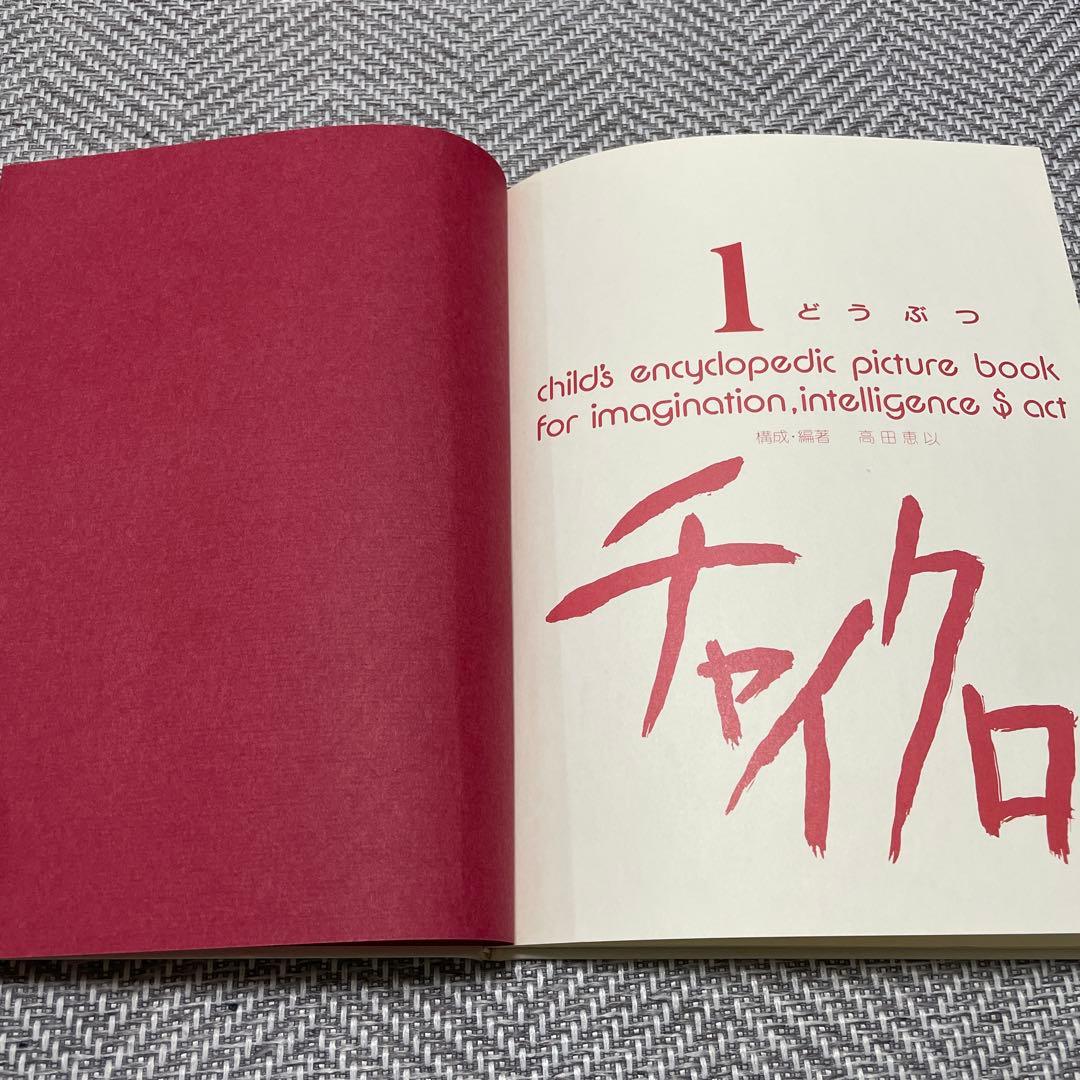 1 どうぶつ
child's encyclopedic picture book
for imagination, intelligence $ act
構成・編著 高田恵以
チャイクロ